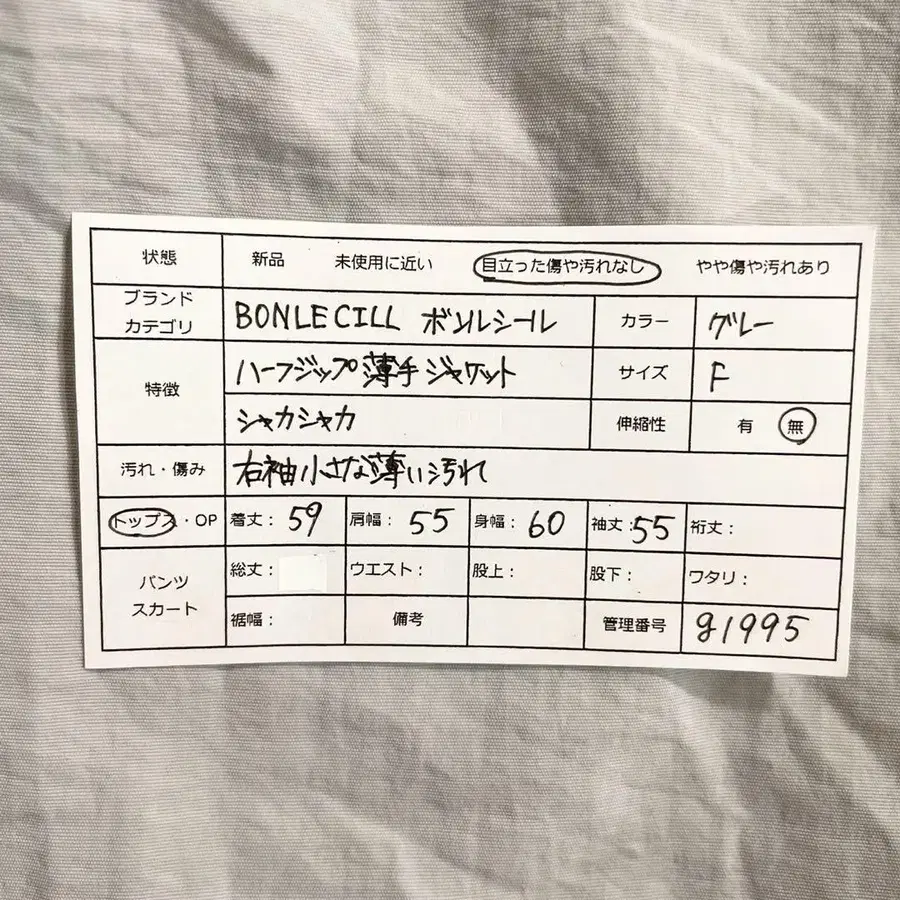 状態 新品 未使用に近い 目立った傷や汚れなし やや傷や汚れあり
ブランド
カテゴリ BONLECILL ボンルシール カラー グレー
特徴 ハーフジップ薄手ジャケット サイズ F
シャカシャカ 伸縮性 有 無
汚れ・傷み 右袖小さな薄い汚れ
トップス・OP 着丈: 59 肩幅: 55 身幅: 60 袖丈: 55 裄丈:
パンツ
スカート 総丈: ウエスト: 股上: 股下: ワタリ:
裾幅: 備考 管理番号 g1995